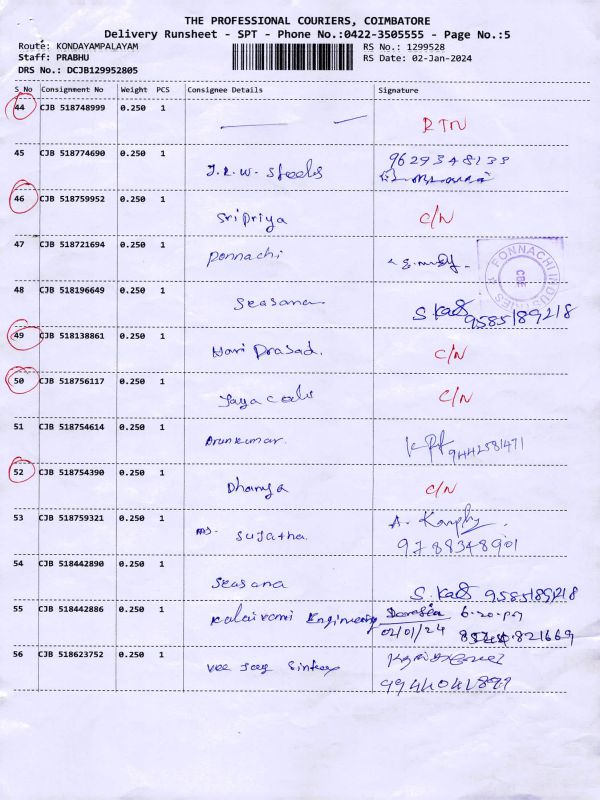 THE PROFESSIONAL COURIERS, COIMBATORE
Delivery Runsheet - SPT - Phone No.:0422-3505555 - Page No.:5
Route: KONDAYAMPALAYAM RS No.: 1299528
Staff: PRABHU RS Date: 02-Jan-2024
DRS No.: DCJB129952805
S No Consignment No Weight PCS Consignee Details Signature
44 CJB 518748999 0.250 1 RTN
45 CJB 518774690 0.250 1 J.R.W. Steels 9629348133
46 CJB 518759952 0.250 1 Sripriya C/N
47 CJB 518721694 0.250 1 Ponnachi
PONNACHI INDUSTRIES CBE
48 CJB 518196649 0.250 1 Seasana 9585189218
49 CJB 518138861 0.250 1 Hari Prasad. C/N
50 CJB 518756117 0.250 1 Jaya C/N
51 CJB 518754614 0.250 1 Arunkumar. 9442581471
52 CJB 518754390 0.250 1 Dhanya C/N
53 CJB 518759321 0.250 1 Ms. Sujatha. A.
9788348901
54 CJB 518442890 0.250 1 Seasana 9585189218
55 CJB 518442886 0.250 1 Kalaivani Engineering 6.20.pm
02/01/24 821669
56 CJB 518623752 0.250 1 Vee Jay